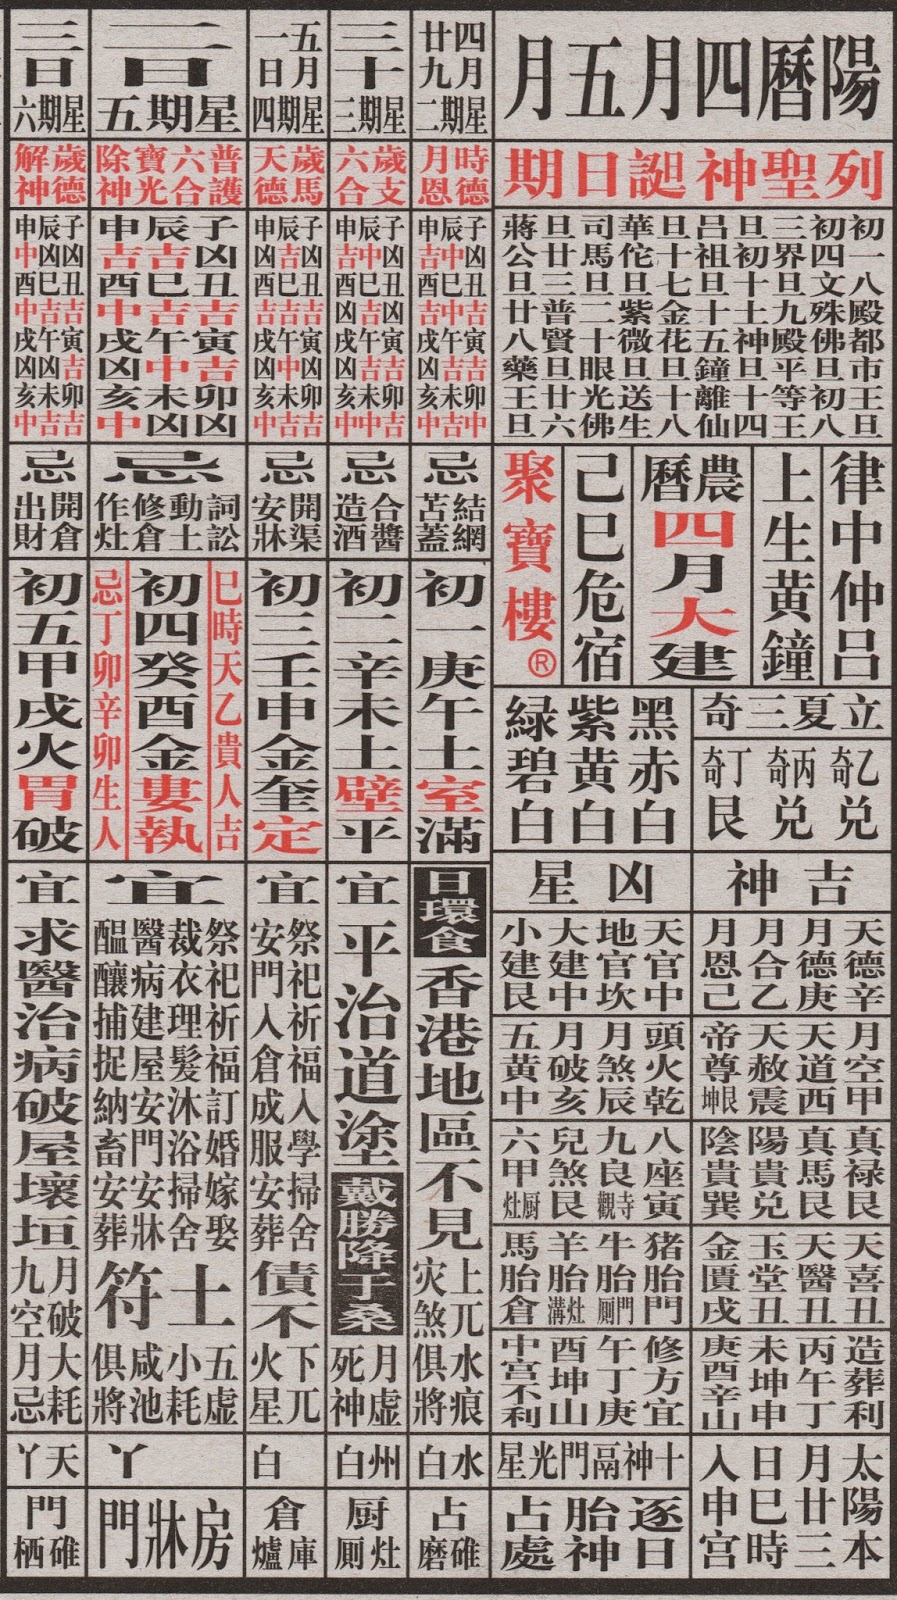 陽曆四月五月
列聖神誕日期
初一八殿都市王旦
初四文殊佛旦初八
三界旦九殿平等王
旦初十土神旦十四
呂祖旦十五鐘離仙
旦十七金花旦十八
華佗旦紫微旦送生
司馬旦二十眼光佛
旦廿三普賢旦廿六
蔣公旦廿八藥王旦
律中仲呂
上生黄鐘
農曆
四月大建
己巳危宿
聚寶樓®
立夏三奇
乙奇兑
丙奇兑
丁奇艮
黑赤白
紫黄白
綠碧白
吉神
天德辛
月德庚
月合乙
月恩己
月空甲
天道西
天赦震
帝尊坤艮
真禄艮
真馬艮
陽貴兑
陰貴巽
天喜丑
天醫丑
玉堂丑
金匱戌
造葬利
丙午丁
未坤申
庚酉辛山
太陽本
月廿三
日巳時
入申宮
凶星
天官中
地官坎
大建中
小建艮
頭火乾
月煞辰
月破亥
五黄中
八座寅
九良寺觀
兒煞艮
六甲厨灶
猪胎門
牛胎門厠
羊胎灶溝
馬胎倉
修方宜
午丁庚
酉坤山
中宮不利
十神鬲門光星
逐日
胎神
占處
四月
廿九
星期二
時德
月恩
子凶丑吉寅吉卯中
辰中巳中午吉未吉
申吉酉吉戌凶亥中
忌
結網
苫蓋
初一庚午土室滿
日環食
香港地區不見
上兀
灾煞
水痕
俱將
水白
占碓磨
三十
星期三
歲支
六合
忌
合醬
造酒
初二辛未土壁平
宜
平治道塗
戴勝降于桑
月虛
死神
州白
厨灶厠
五月
一日
星期四
歲馬
天德
忌
開渠
安牀
初三壬申金奎定
宜
祭祀祈福入學掃舍
安門入倉成服安葬
債不
下兀
火星
白
倉庫爐
二日
星期五
普護
六合
寶光
除神
子凶丑吉寅吉卯凶
辰吉巳吉午中未凶
申吉酉中戌凶亥中
忌
詞訟
動土
修倉
作灶
巳時天乙貴人吉
初四癸酉金婁執
忌丁卯辛卯生人
宜
祭祀祈福訂婚嫁娶
裁衣理髮沐浴掃舍
醫病建屋安門安牀
醖釀捕捉納畜安葬
土符
五虛
小耗
咸池
俱將
丫
房牀門
三日
星期六
歲德
解神
忌
開倉
出財
初五甲戌火胃破
宜
求醫治病破屋壞垣
月破
九空
大耗
月忌
天丫
門碓栖